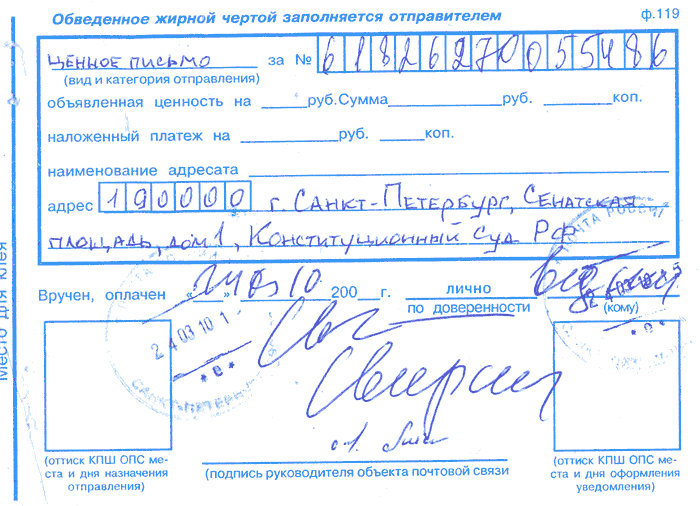 Обведенное жирной чертой заполняется отправителем ф.119
ценное письмо за № 61826270055486
(вид и категория отправления)
объявленная ценность на ______руб.Сумма____________руб. _______коп.
наложенный платеж на _______руб. _____коп.
наименование адресата
адрес 190000 г. Санкт-Петербург, Сенатская
площадь, дом 1, Конституционный суд РФ
ПОЧТА РОССИИ
Вручен, оплачен «24» 03 10 200__г. лично
по доверенности (кому)
24 03 10 1
САНКТ-ПЕТЕРБ
Место для клея
(оттиск КПШ ОПС ме-
ста и дня назначения
отправления)
(подпись руководителя объекта почтовой связи)
(оттиск КПШ ОПС ме-
ста и дня оформления
уведомления)